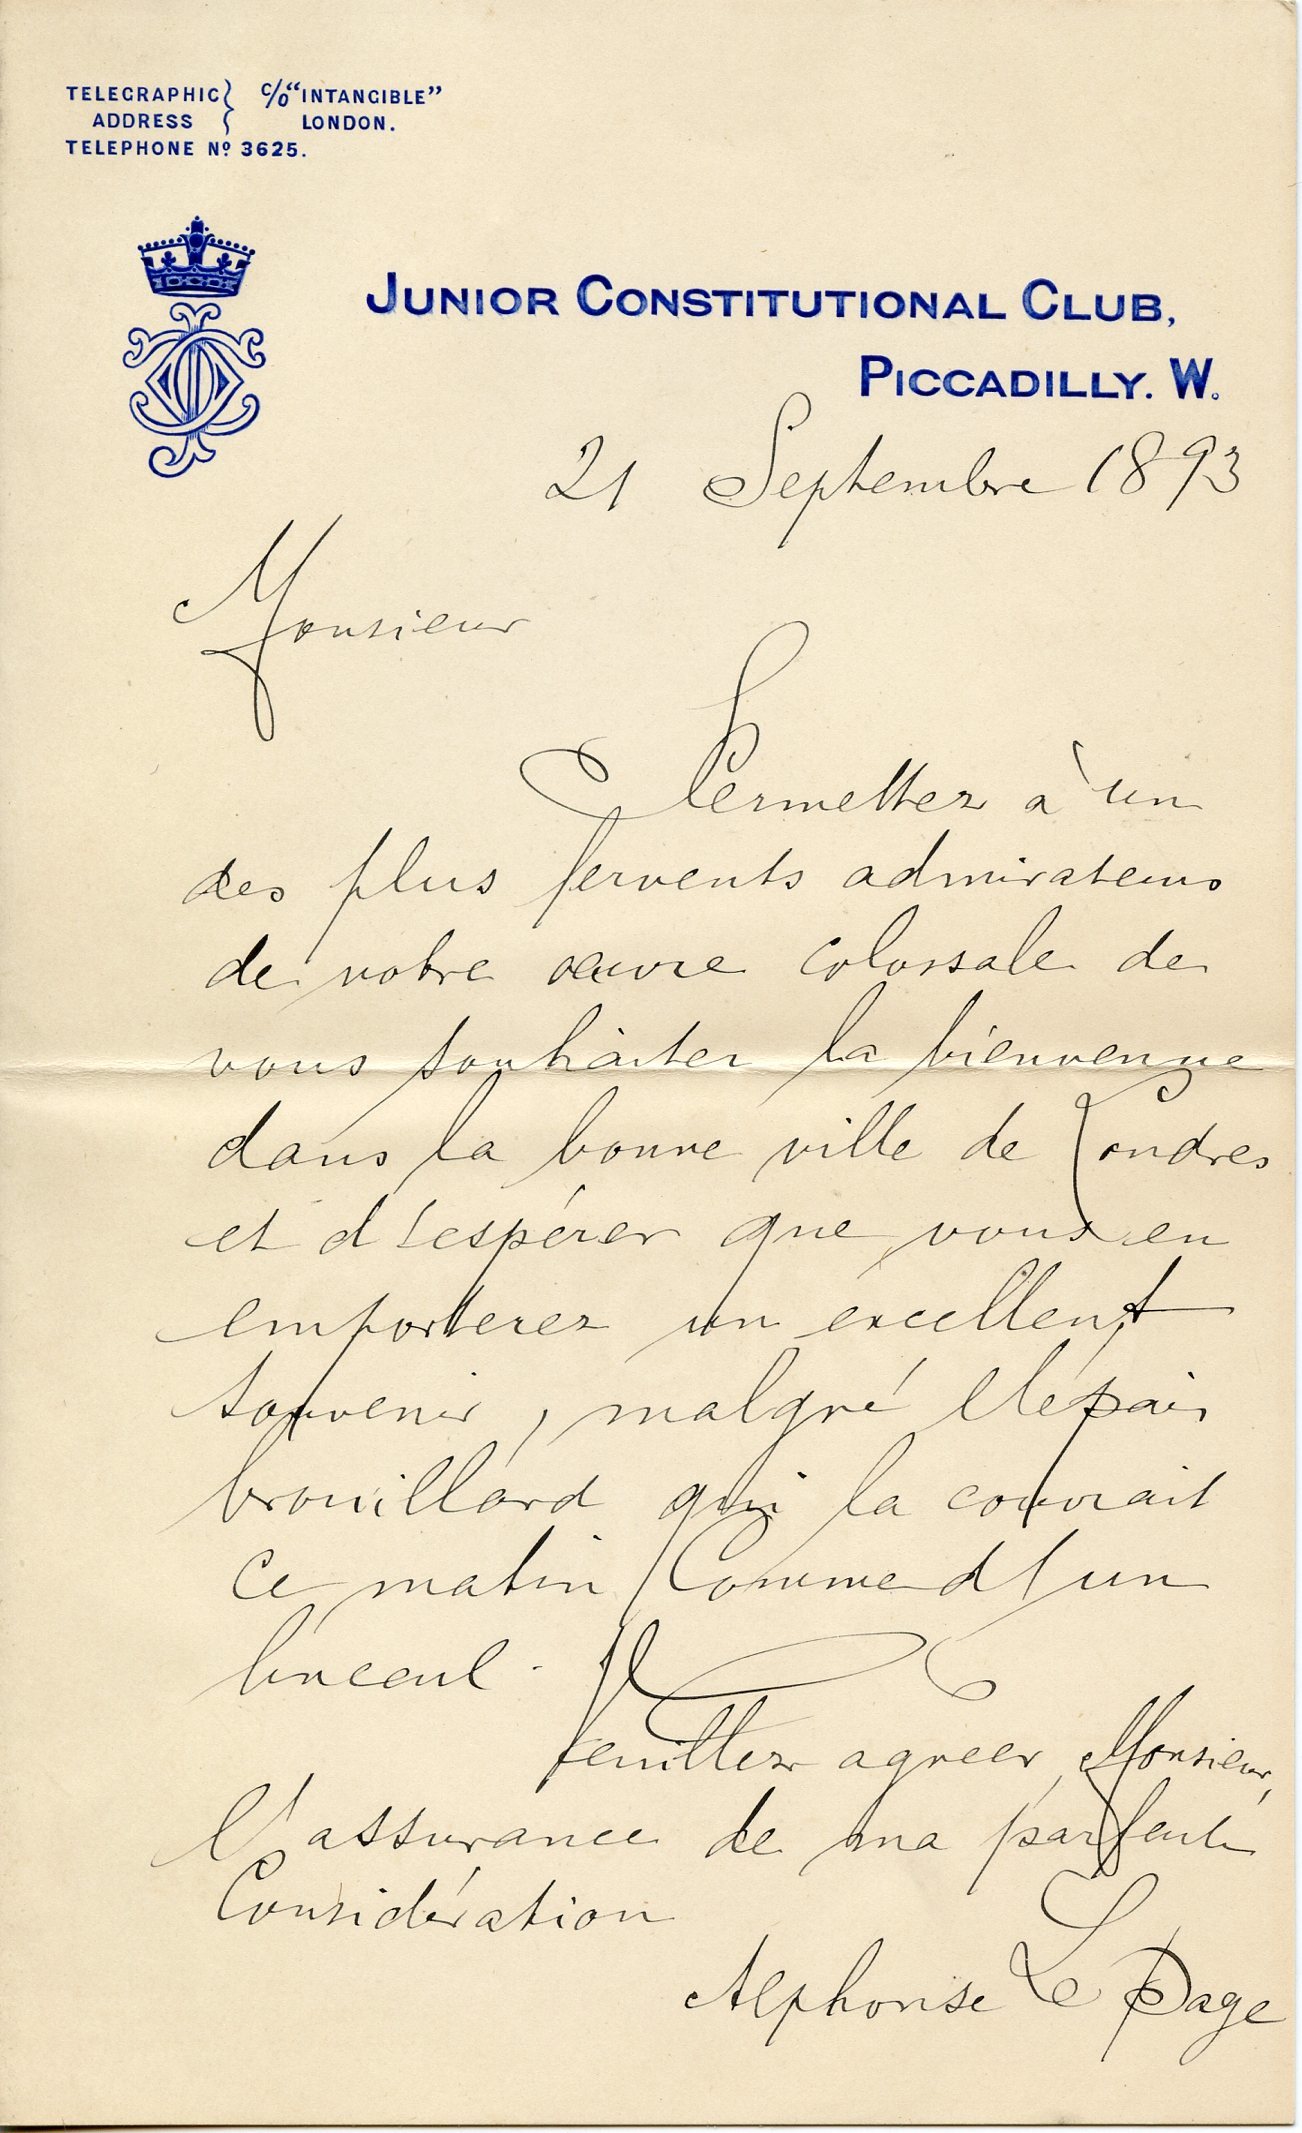 TELEGRAPHIC } C/O "INTANGIBLE"
ADDRESS LONDON.
TELEPHONE Nº 3625.
JUNIOR CONSTITUTIONAL CLUB,
PICCADILLY. W.
21 Septembre 1893
Monsieur
Permettez à un
des plus fervents admirateurs
de votre œuvre colossale de
vous souhaiter la bienvenue
dans la bonne ville de Londres
et d'espérer que vous en
emporterez un excellent
souvenir, malgré l'épais
brouillard qui la couvrait
ce matin comme d'un
linceul.
Veuillez agréer, Monsieur,
l'assurance de ma parfaite
Considération
Alphonse Le Page